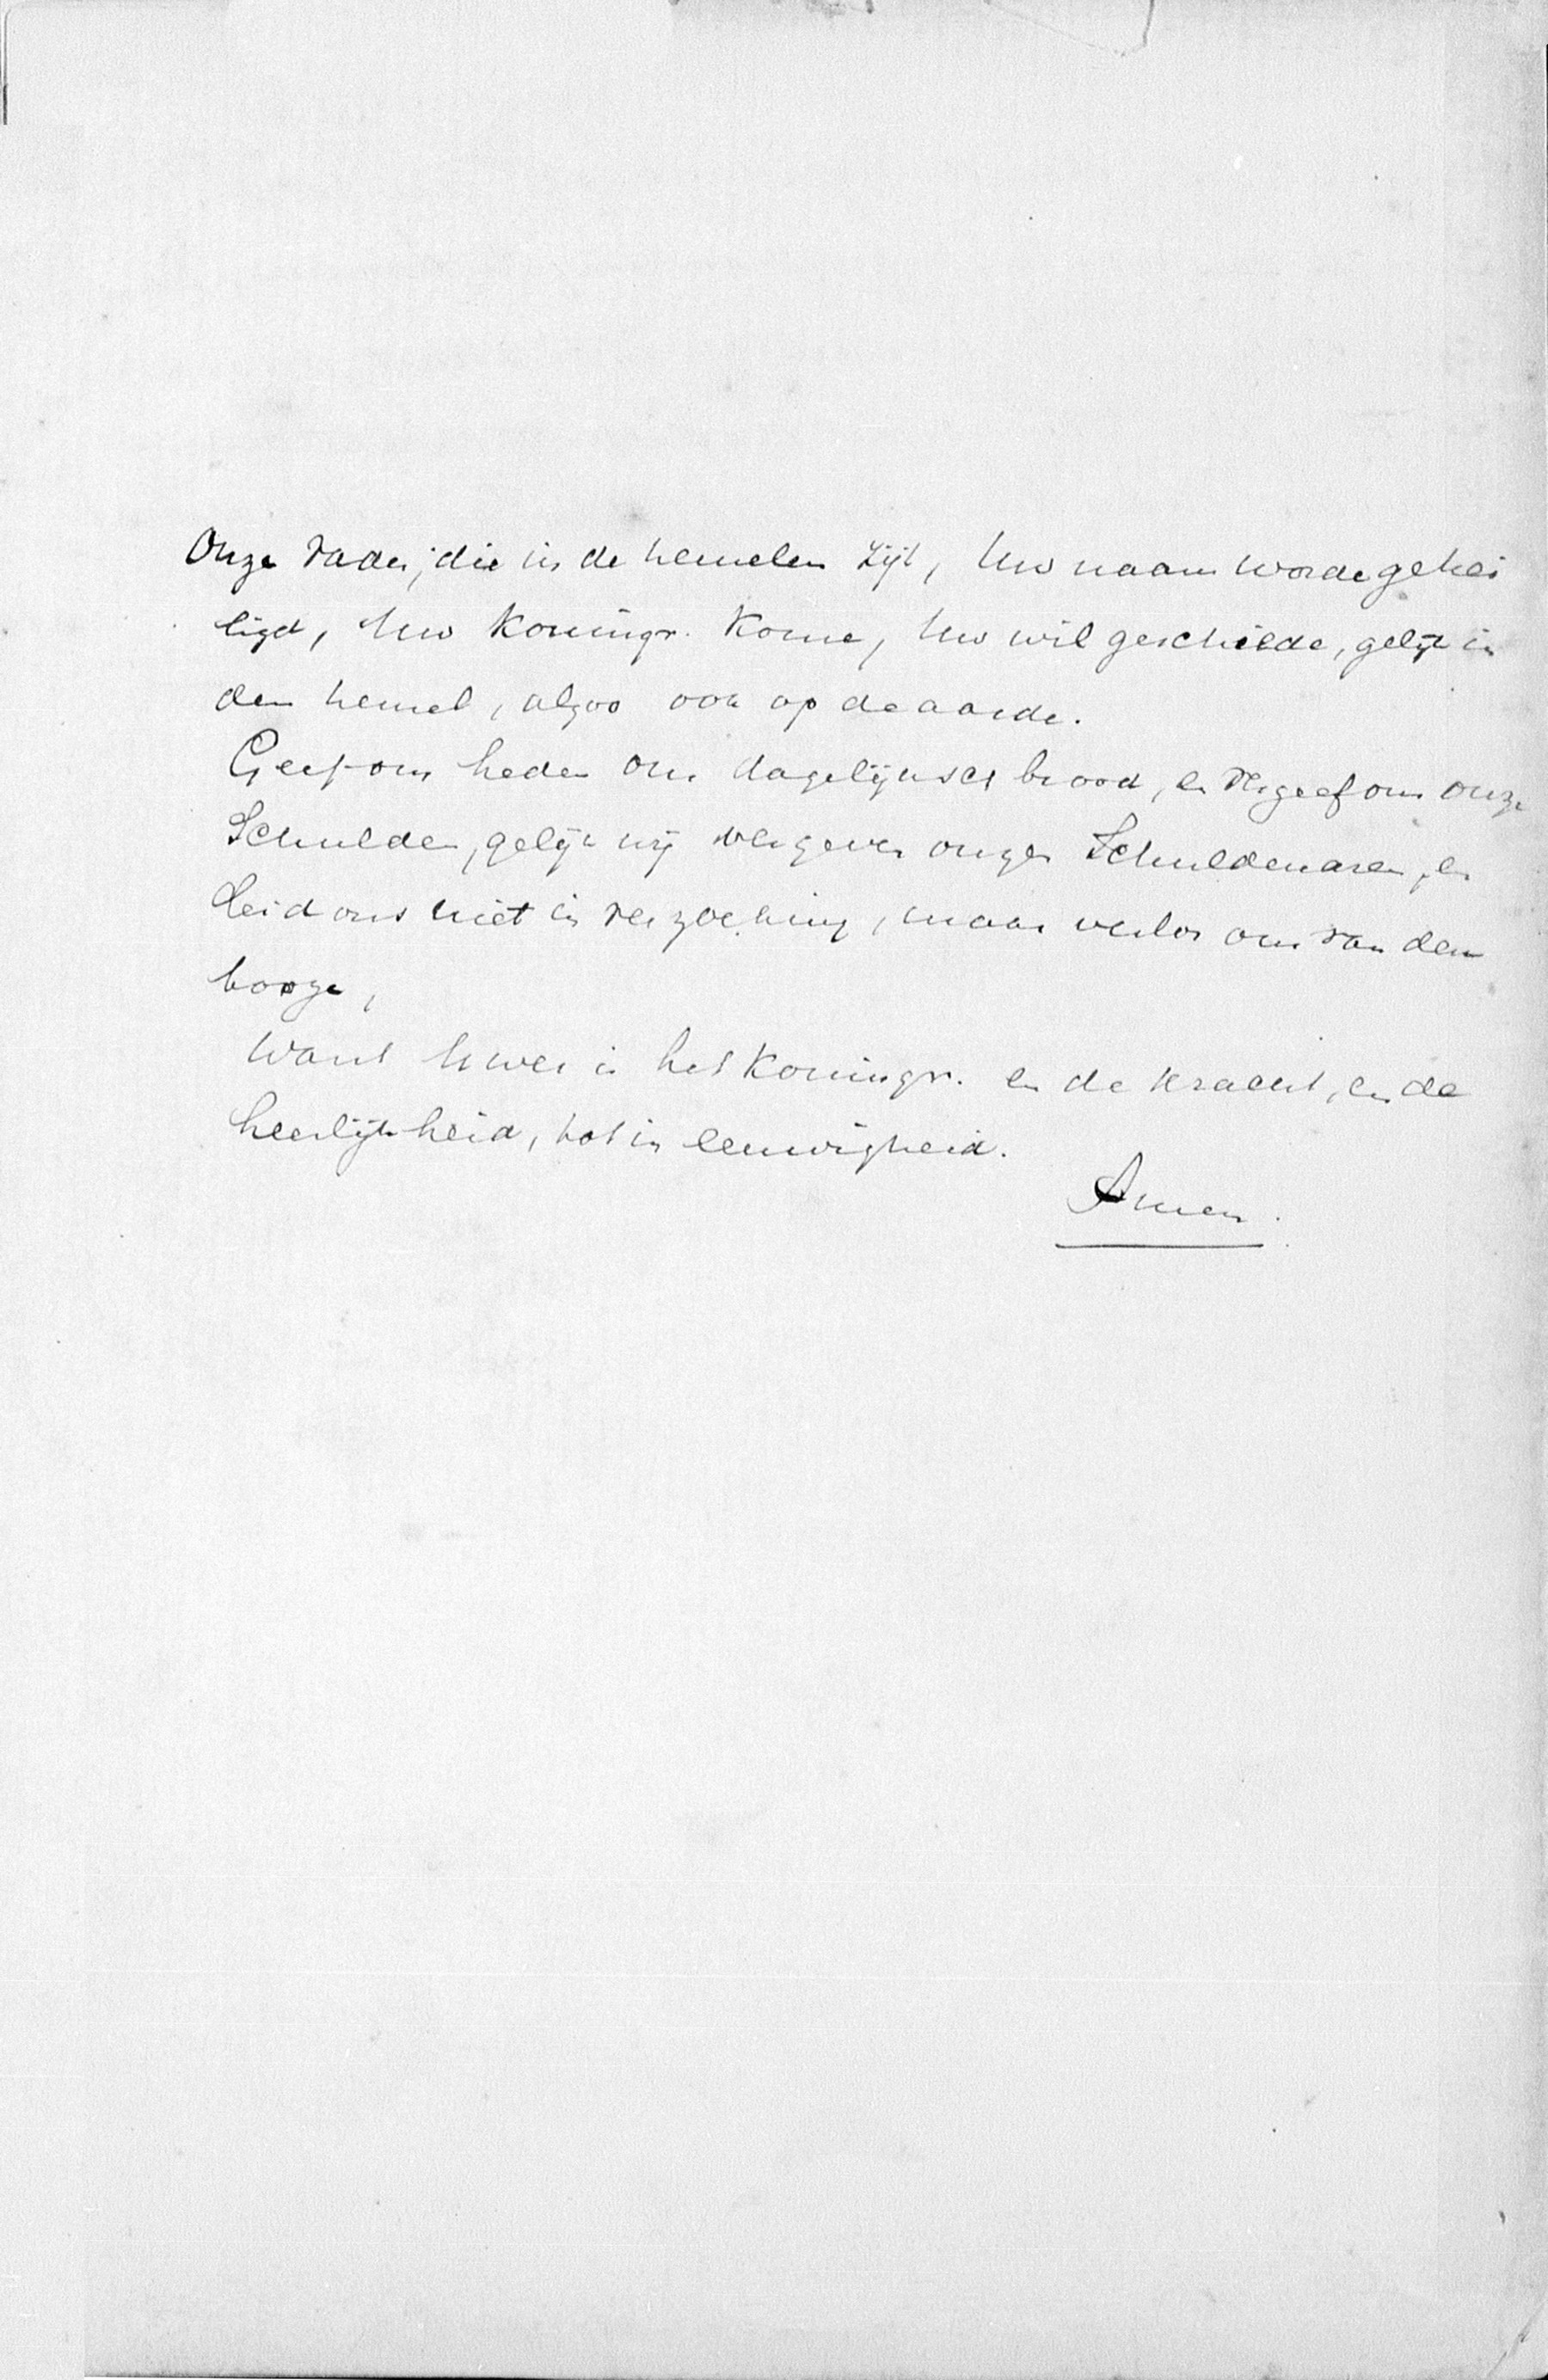 Onze Vader, die in de hemelen zijt, Uw naam worde gehei
ligd, Uw koningr. kome, Uw wil geschiede, gelijk in
den hemel, alzoo ook op de aarde.
Geef ons heden ons dagelijksch brood, en vergeef ons onze
Schulden, gelijk wij vergeven onzen Schuldenaren, en
Leid ons niet in verzoeking, maar verlos ons van den
booze,
Want Uwer is het Koningr. en de kracht, en de
heerlijkheid, tot in eeuwigheid.
Amen.